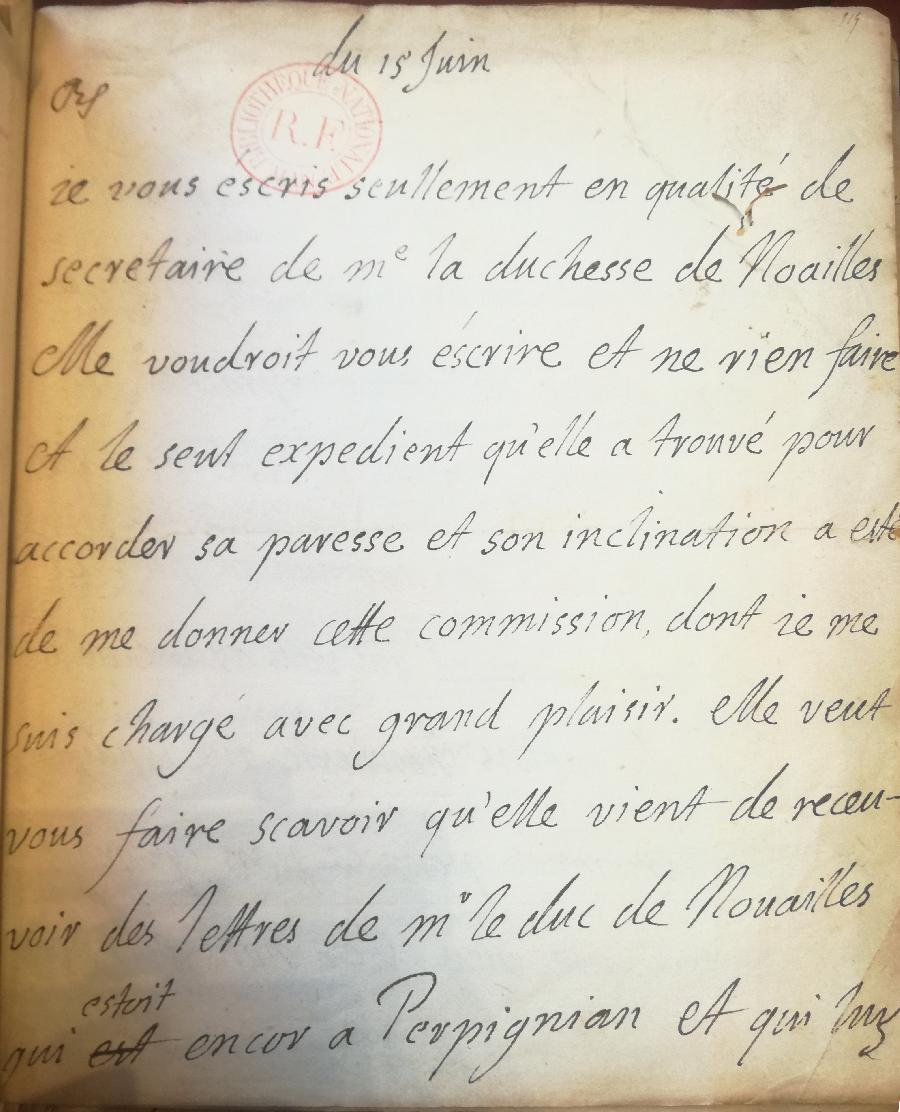 du 15 Juin
BIBLIOTHEQUE NATIONALE
R.F.
ie vous escris seullement en qualité de
secretaire de me la duchesse de Noailles
elle voudroit vous éscrire et ne rien faire
et le seul expedient qu'elle a trouvé pour
accorder sa paresse et son inclination a esté
de me donner cette commission, dont ie me
suis chargé avec grand plaisir. elle veut
vous faire scavoir qu'elle vient de receu-
voir des lettres de mr le duc de Nouailles
estoit
qui est encor a Perpignian et qui luy